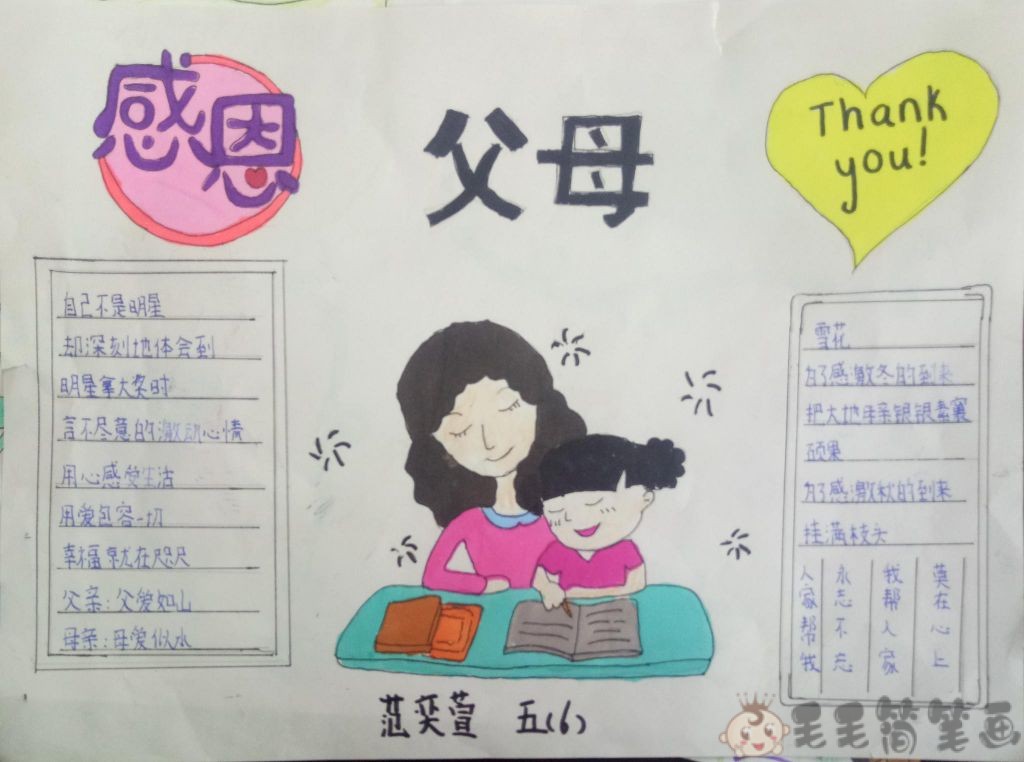 感恩
父母
Thank
you!
自己不是明星
却深刻地体会到
明星拿大奖时
言不尽意的激动心情
用心感受生活
用爱包容一切
幸福就在咫尺
父亲:父爱如山
母亲:母爱似水
雪花
为了感激冬的到来
把大地母亲银银素裹
硕果
为了感激秋的到来
挂满枝头
人家帮我
永志不忘
我帮人家
莫在心上
范奕萱 五(6)
毛毛简笔画